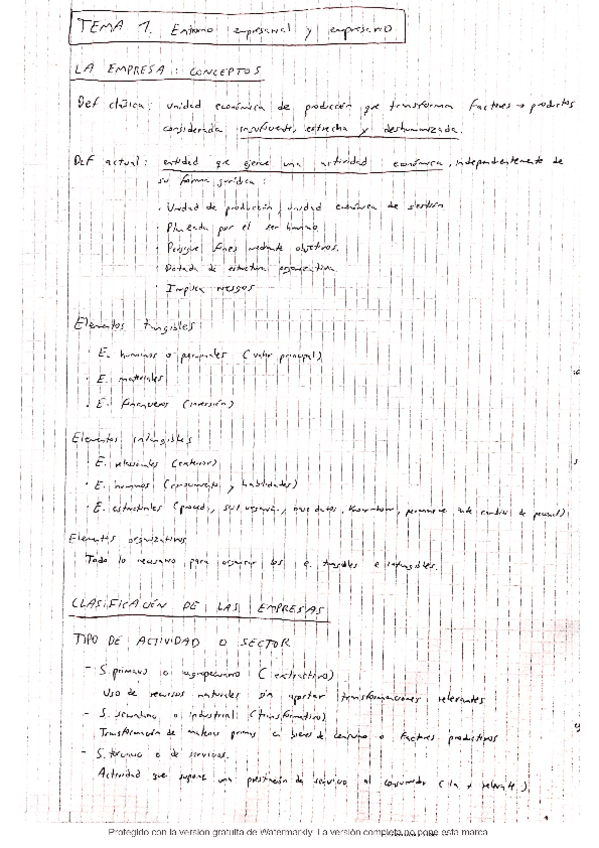 TEMA 1. Entorno empresarial y empresario
LA EMPRESA: CONCEPTOS
Def clásica: unidad económica de producción que transforma factores → productos
considerada insuficiente, estrecha y deshumanizada.
Def actual: entidad que ejerce una actividad económica, independientemente de
su forma jurídica:
· Unidad de producción, unidad económica de gestión
· Planeada por el ser humano.
· Persigue fines mediante objetivos.
· Dotada de estructura organizativa
· Implica riesgos
Elementos tangibles
· E. humanos o personales (valor principal)
· E. materiales
· E. financieros (inversión)
Elementos intangibles
· E. relacionales (exterior)
· E. humanos (conocimiento y habilidades)
· E. estructurales (proced., org., base datos, know-how, permanece ante cambios de personal)
Elementos organizativos
Todo lo necesario para organizar los e. tangibles e intangibles.
CLASIFICACIÓN DE LAS EMPRESAS
TIPO DE ACTIVIDAD O SECTOR
- S. primario o agropecuario (extractivo)
Uso de recursos naturales sin aportar transformaciones relevantes
- S. secundario o industrial (transformativo)
Transformación de materias primas en bienes de consumo o factores productivos
- S. terciario o de servicios.
Actividad que supone una prestación de servicio al consumidor (la + relevante).
Protegido con la versión gratuita de Watermarkly. La versión completa no pone esta marca